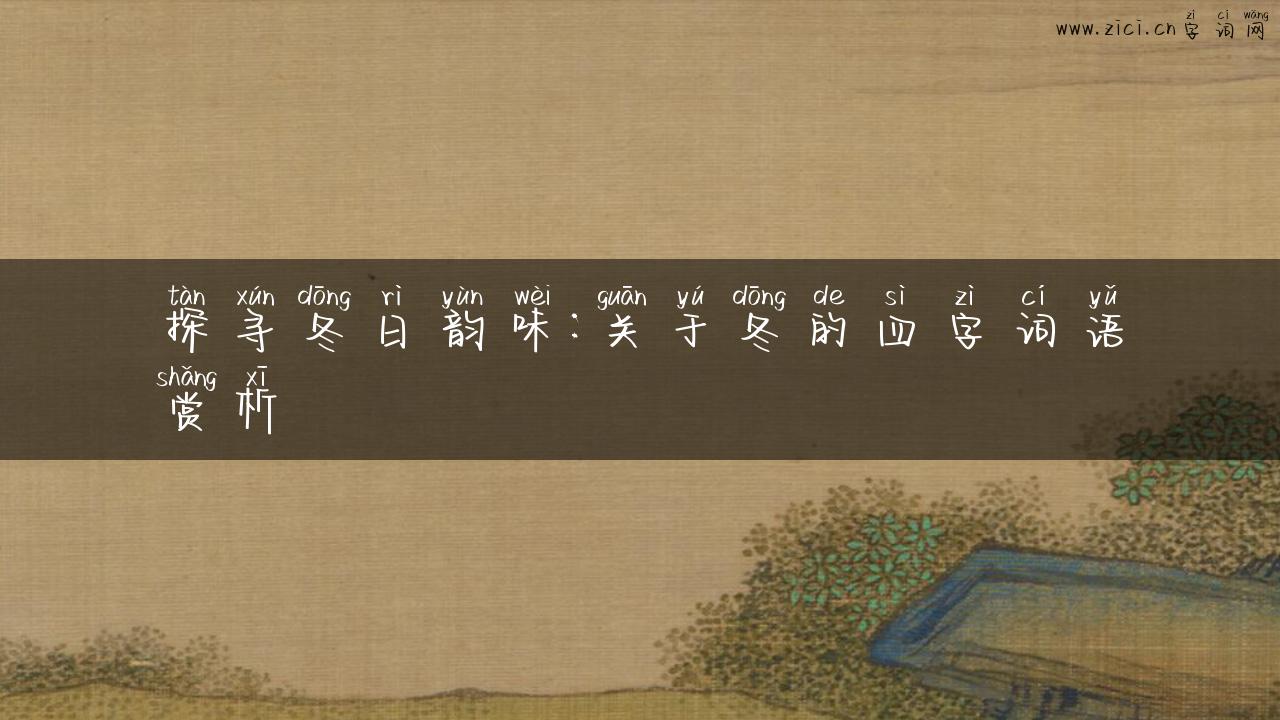 zì cí wǎng
www.zici.cn字词网
tàn xún dōng rì yùn wèi guān yú dōng de sì zì cí yǔ
探寻冬日韵味:关于冬的四字词语
shǎng xī
赏析